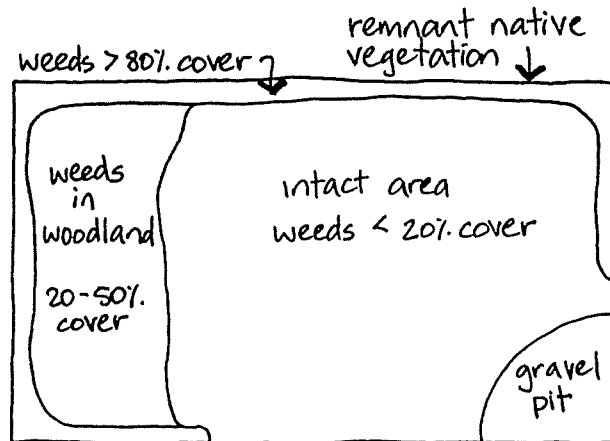 remnant native
vegetation
weeds > 80% cover
weeds
in
woodland
20-50%
cover
intact area
weeds < 20% cover
gravel
pit